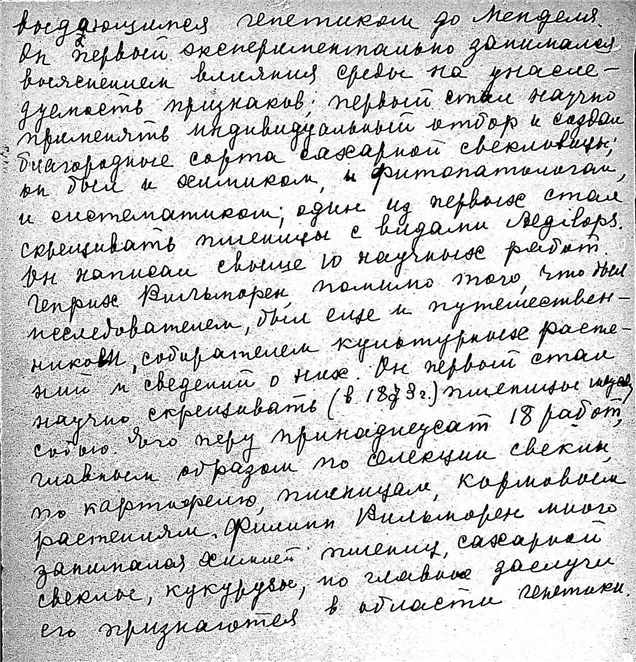 выдающимся генетиком до Менделя.
Он первый экспериментально занимался
выяснением влияния среды на унасле-
дуемость признаков; первый стал научно
применять индивидуальный отбор и создал
благородные сорта сахарной свекловицы;
он был и химиком, и фитопатологом,
и систематиком; один из первых стал
скрещивать пшеницы с видами Aegilops.
Он написал свыше 10 научных работ.
Генрих Вильморен, помимо того, что был
исследователем, был еще и путешествен-
ником, собирателем культурных расте-
ний и сведений о них. Он первый стал
научно скрещивать (в 1873г.) пшеницы между
собою. Его перу принадлежат 18 работ,
главным образом по селекции свеклы,
по картофелю, пшеницам, кормовым
растениям. Филипп Вильморен много
занимался химией пшениц, сахарной
свеклы, кукурузы, но главные заслуги
его признаются в области генетики.